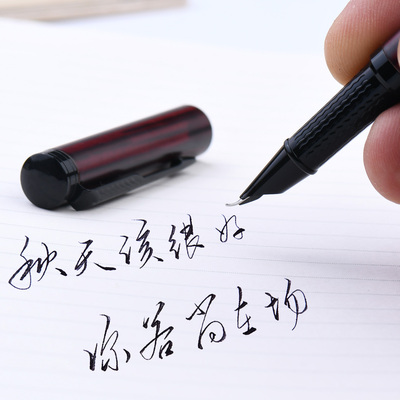 秋天该很好
你若尚在场